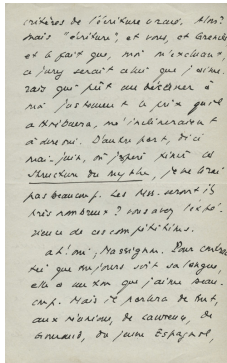 critères de l'écriture vraie. Alors?
mais "écriture", et vous, et Grenier
et le fait que, moi m'excluant,
ce jury serait celui que j'aime-
rais que pût au décerner à
moi justement le prix qu'il
attribuera, m'inclineraient
à dire oui. D'autre part, d'ici
mai-juin, où j'espère finir ce
structure du mythe, je ne lirai
pas beaucoup. Les mss. seront-ils
très nombreux? vous avez l'expé-
rience de ces compétitions.
ah! oui, Massignon.
que toujours soit sa langue,
elle a un ton que j'aime beau-
coup. Mais il parlera de tout,
aux réunions, de Lawrence, de
du jeune Espagnol,